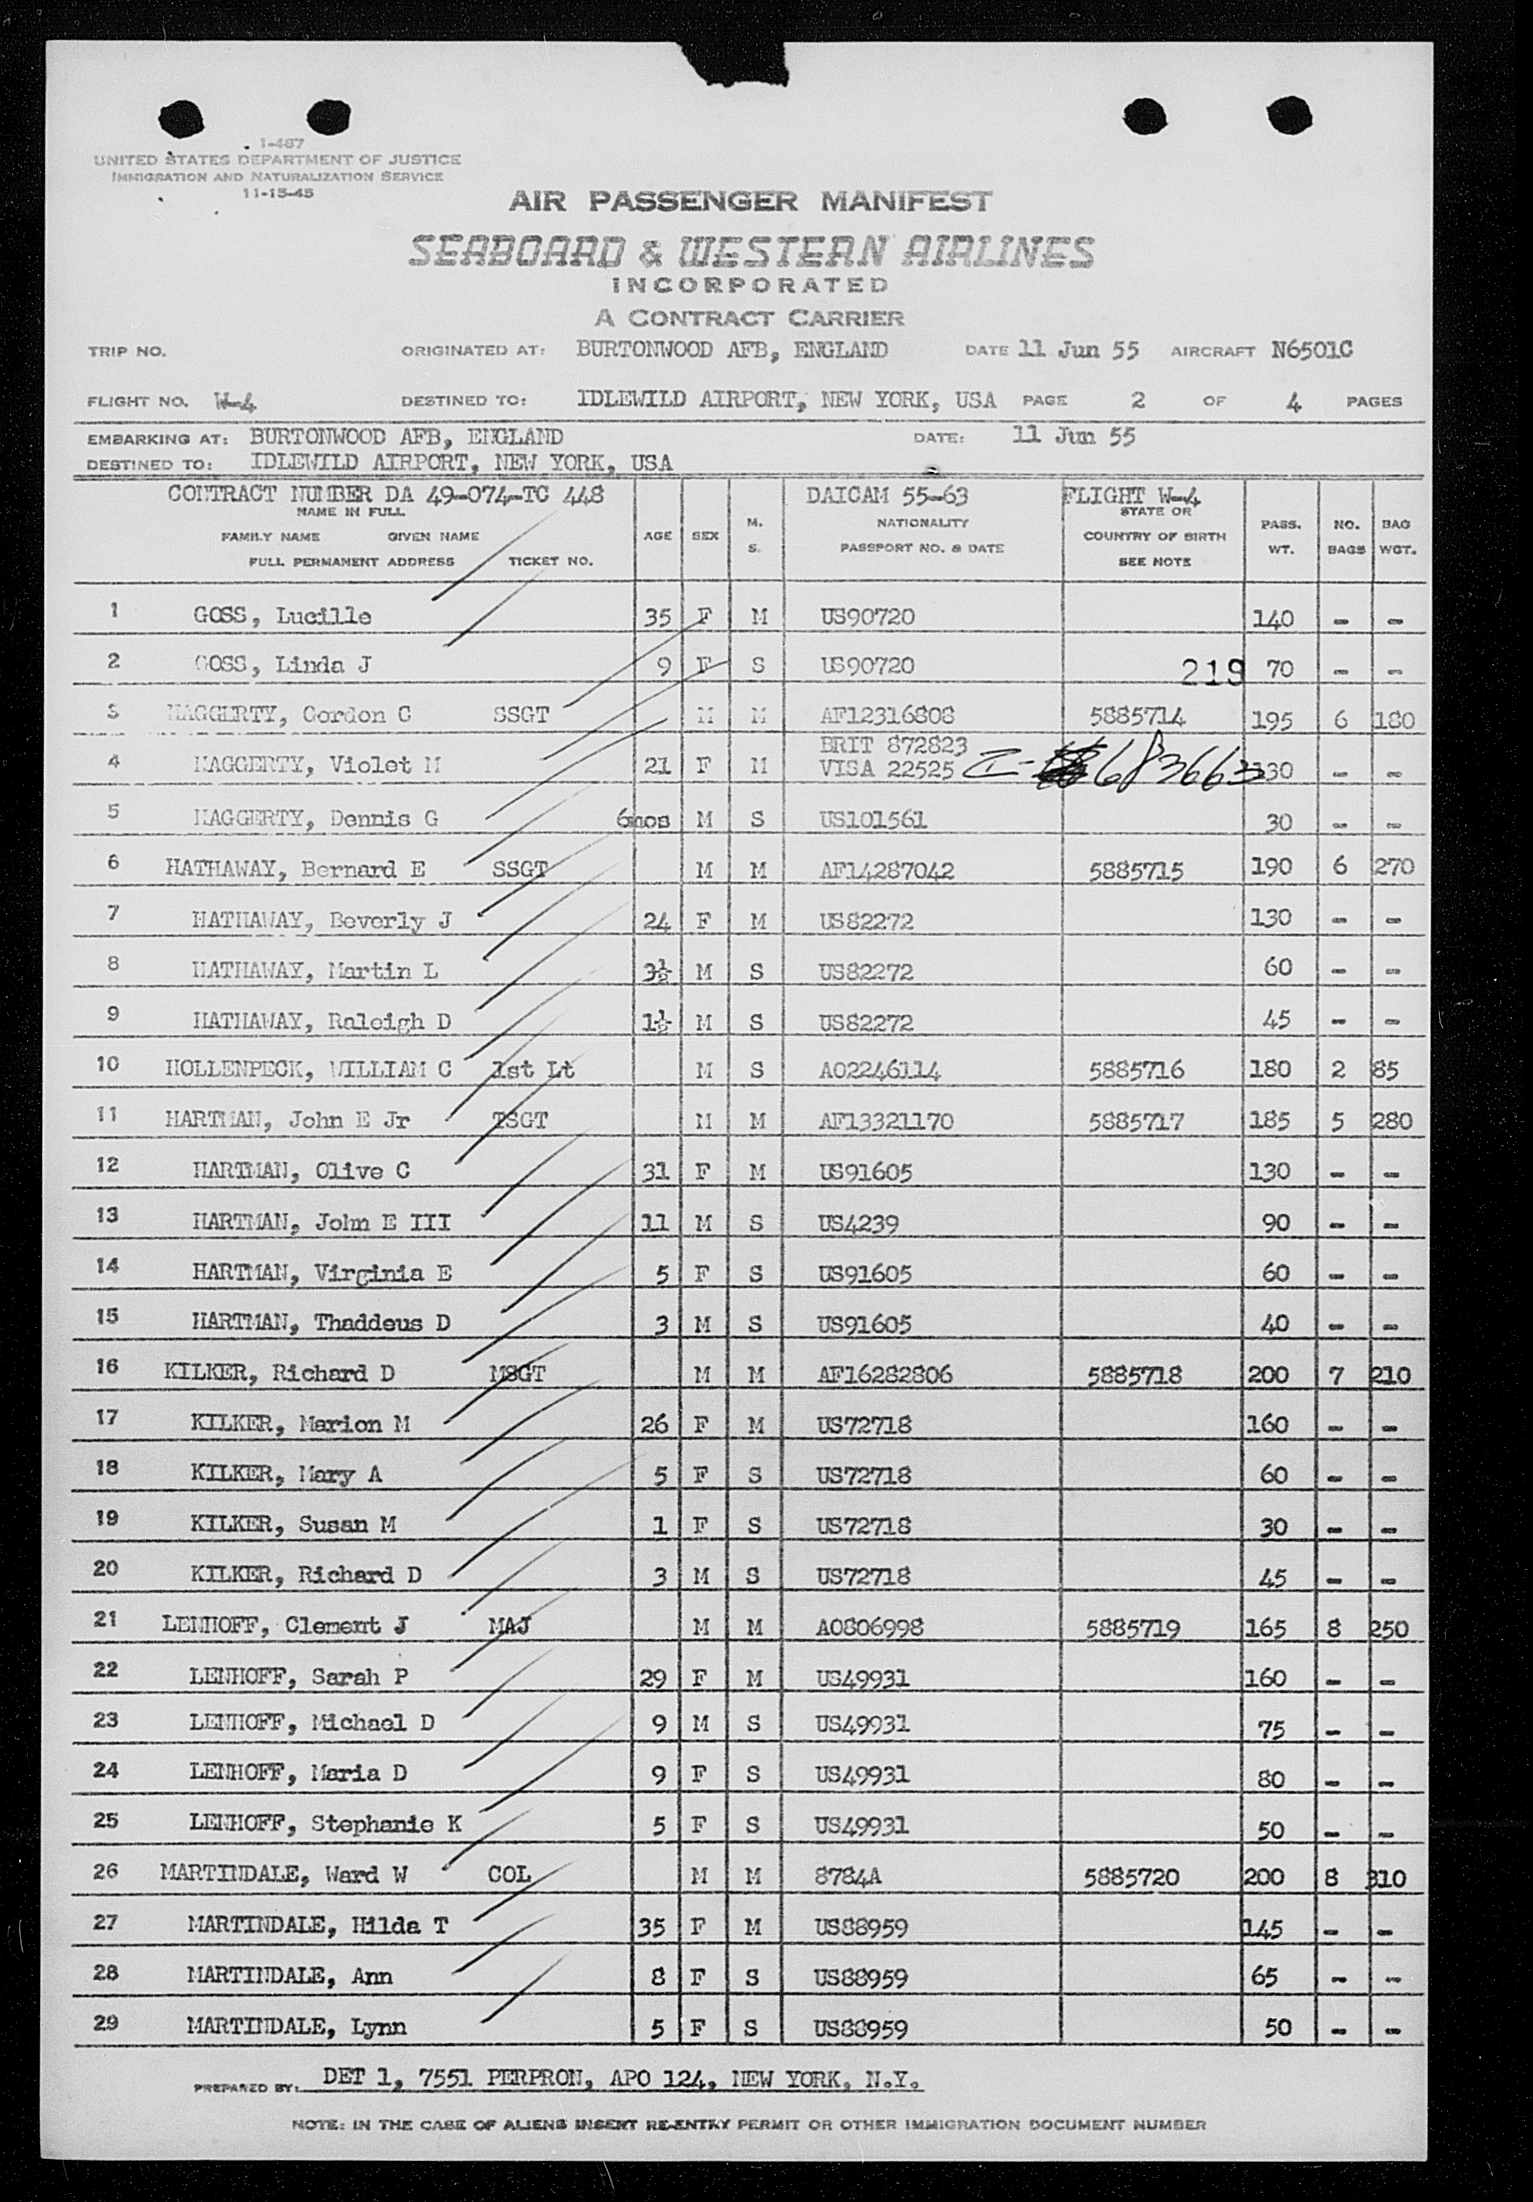 I-467
UNITED STATES DEPARTMENT OF JUSTICE
IMMIGRATION AND NATURALIZATION SERVICE
11-15-45
AIR PASSENGER MANIFEST
SEABOARD & WESTERN AIRLINES
INCORPORATED
A CONTRACT CARRIER
TRIP NO. ORIGINATED AT: BURTONWOOD AFB, ENGLAND DATE 11 Jun 55 AIRCRAFT N6501C
FLIGHT NO. W-4 DESTINED TO: IDLEWILD AIRPORT, NEW YORK, USA PAGE 2 OF 4 PAGES
EMBARKING AT: BURTONWOOD AFB, ENGLAND DATE: 11 Jun 55
DESTINED TO: IDLEWILD AIRPORT, NEW YORK, USA
CONTRACT NUMBER DA 49-074-TC 448 DAICAM 55-63 FLIGHT W-4
NAME IN FULL M. NATIONALITY STATE OR PASS. NO. BAG
FAMILY NAME GIVEN NAME AGE SEX COUNTRY OF BIRTH
FULL PERMANENT ADDRESS TICKET NO. S. PASSPORT NO. & DATE SEE NOTE WT. BAGS WGT.
1 GOSS, Lucille 35 F M US90720 140 - -
2 GOSS, Linda J 9 F S US90720 219 70 - -
3 HAGGERTY, Gordon C SSGT M M AF12316808 5885714 195 6 180
BRIT 872823
4 HAGGERTY, Violet M 21 F M VISA 22525 I- 683663 130 - -
5 HAGGERTY, Dennis G 6mos M S US101561 30 - -
6 HATHAWAY, Bernard E SSGT M M AF14287042 5885715 190 6 270
7 HATHAWAY, Beverly J 24 F M US82272 130 - -
8 HATHAWAY, Martin L 3½ M S US82272 60 - -
9 HATHAWAY, Raleigh D 1½ M S US82272 45 - -
10 HOLLENPECK, WILLIAM C 1st Lt M S AO2246114 5885716 180 2 85
11 HARTMAN, John E Jr TSGT M M AF13321170 5885717 185 5 280
12 HARTMAN, Olive C 31 F M US91605 130 - -
13 HARTMAN, John E III 11 M S US4239 90 - -
14 HARTMAN, Virginia E 5 F S US91605 60 - -
15 HARTMAN, Thaddeus D 3 M S US91605 40 - -
16 KILKER, Richard D MSGT M M AF16282806 5885718 200 7 210
17 KILKER, Marion M 26 F M US72718 160 - -
18 KILKER, Mary A 5 F S US72718 60 - -
19 KILKER, Susan M 1 F S US72718 30 - -
20 KILKER, Richard D 3 M S US72718 45 - -
21 LENHOFF, Clement J MAJ M M AO806998 5885719 165 8 250
22 LENHOFF, Sarah P 29 F M US49931 160 - -
23 LENHOFF, Michael D 9 M S US49931 75 - -
24 LENHOFF, Maria D 9 F S US49931 80 - -
25 LENHOFF, Stephanie K 5 F S US49931 50 - -
26 MARTINDALE, Ward W COL M M 8784A 5885720 200 8 310
27 MARTINDALE, Hilda T 35 F M US88959 145 - -
28 MARTINDALE, Ann 8 F S US88959 65 - -
29 MARTINDALE, Lynn 5 F S US88959 50 - -
PREPARED BY: DET 1, 7551 PERPRON, APO 124, NEW YORK, N.Y.
NOTE: IN THE CASE OF ALIENS INSERT RE-ENTRY PERMIT OR OTHER IMMIGRATION DOCUMENT NUMBER